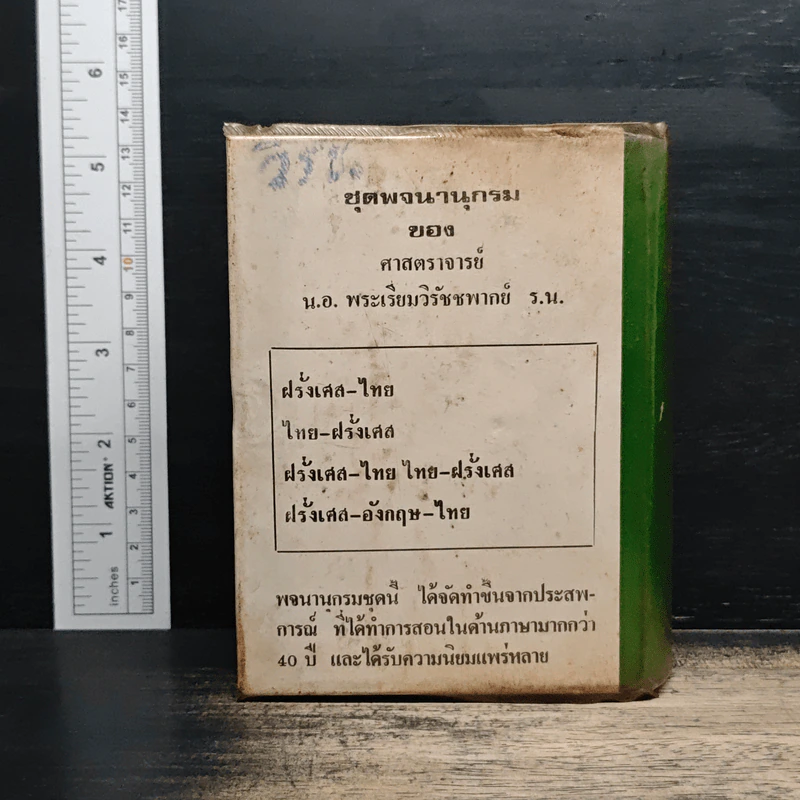 ชุดพจนานุกรม
ของ
ศาสตราจารย์
น.อ. พระเรี่ยมวิรัชชพากย์ ร.น.
ฝรั่งเศส-ไทย
ไทย-ฝรั่งเศส
ฝรั่งเศส-ไทย ไทย-ฝรั่งเศส
ฝรั่งเศส-อังกฤษ-ไทย
พจนานุกรมชุดนี้ ได้จัดทำขึ้นจากประสพ-
การณ์ ที่ได้ทำการสอนในด้านภาษามากกว่า
40 ปี และได้รับความนิยมแพร่หลาย
6
5
4
3
2
1
AKTION
inches
17
16
15
14
13
12
11
10
9
8
7
6
5
4
3
2
1